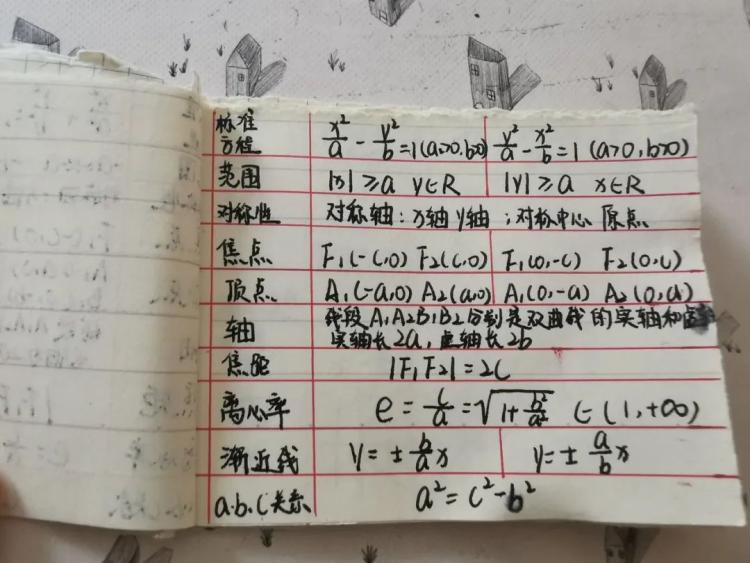 标准方程 x²/a - y²/b =1(a>0,b>0) y²/a - x²/b =1 (a>0,b>0)
范围 |x|≥a y∈R |y|≥a x∈R
对称性 对称轴:x轴y轴;对称中心 原点
焦点 F₁(-c,0) F₂(c,0) F₁(0,-c) F₂(0,c)
顶点 A₁(-a,0) A₂(a,0) A₁(0,-a) A₂(0,a)
轴 线段A₁A₂B₁B₂分别是双曲线的实轴和
实轴长2a,虚轴长2b
焦距 |F₁F₂|=2c
离心率 e = c/a = √(1+b²/a²) ∈(1,+∞)
渐近线 y=±b/a x y=±a/b x
a.b.c关系 a²=c²-b²